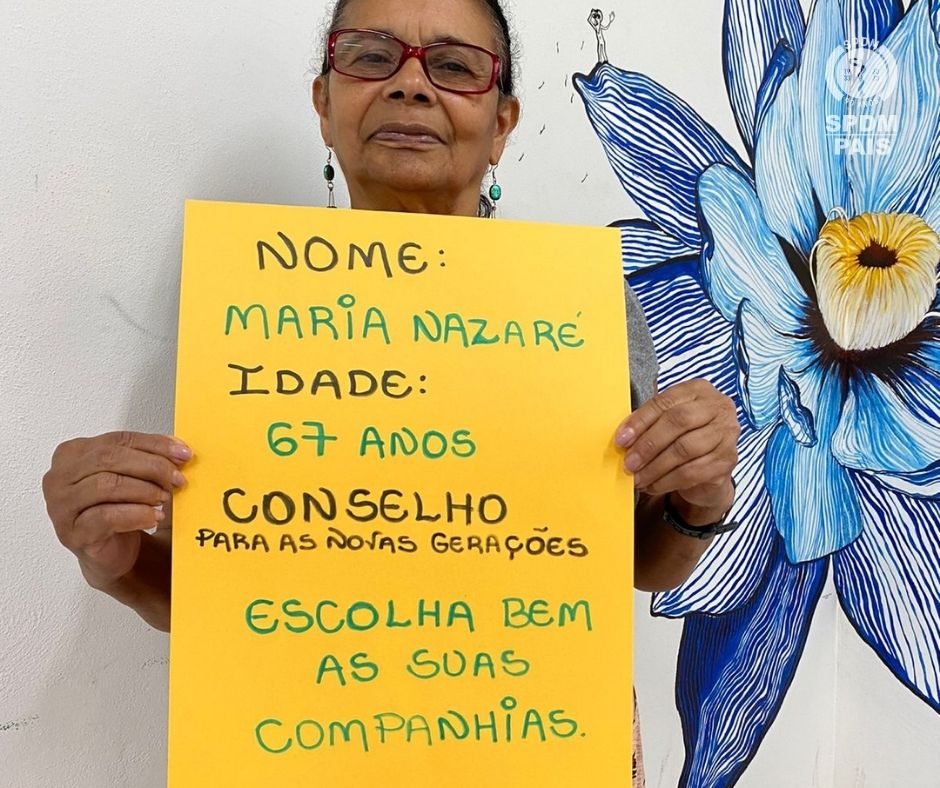 NOME:
MARIA NAZARÉ
IDADE:
67 ANOS
CONSELHO
PARA AS NOVAS GERAÇÕES
ESCOLHA BEM
AS SUAS
COMPANHIAS.
SPDM
PAIS